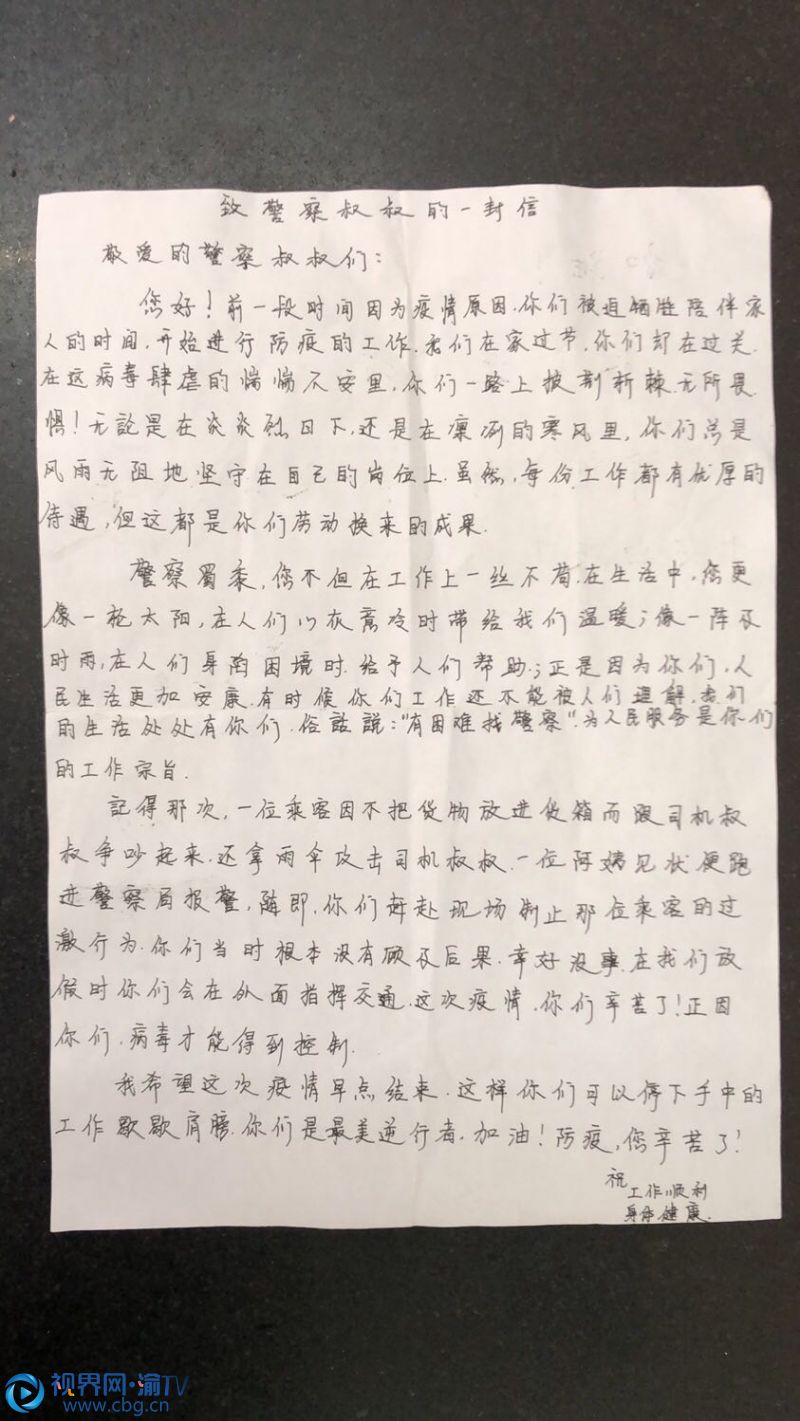 致警察叔叔的一封信
敬爱的警察叔叔们：
您好！前一段时间因为疫情原因，你们被迫牺牲陪伴家
人的时间，开始进行防疫的工作，我们在家过节，你们却在过关．
在这病毒肆虐的惴惴不安里，你们一路上披荆斩棘．无所畏
惧！无论是在炎炎烈日下，还是在凛冽的寒风里，你们总是
风雨无阻地坚守在自己的岗位上．虽然，每份工作都有优厚的
待遇，但这都是你们劳动换来的成果．
警察蜀黍，您不但在工作上一丝不苟．在生活中，您更
像一轮太阳，在人们心灰意冷时带给我们温暖；像一阵及
时雨，在人们身陷困境时．给予人们帮助．；正是因为你们，人
民生活更加安康．有时候你们工作还不能被人们理解，我们
的生活处处有你们．俗话说：“有困难找警察”．为人民服务是你们
的工作宗旨．
記得那次，一位乘客因不把货物放进货箱而跟司机叔
叔争吵起来．还拿雨伞攻击司机叔叔．一位阿姨见状便跑
进警察局报警，随即，你们奔赴现场制止那位乘客的过
激行为．你们当时根本没有顾及后果．幸好没事．在我们放
假时你们会在外面指挥交通．这次疫情．你们辛苦了！正因
你们．病毒才能得到控制．
我希望这次疫情早点结束．这样你们可以停下手中的
工作歇歇肩膀．你们是最美逆行者．加油！防疫，您辛苦了！
祝
工作顺利
身体健康．
视界网·渝TV
www.cbg.cn